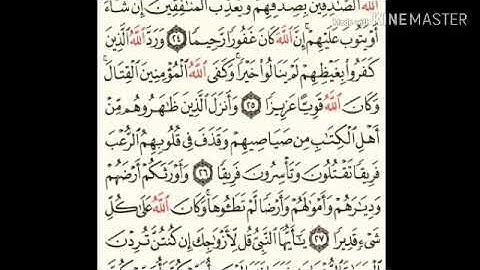 ٱللَّهُ ٱلصَّٰدِقِينَ بِصِدْقِهِمْ وَيُعَذِّبَ ٱلْمُنَٰفِقِينَ إِن شَآءَ
Made with KINEMASTER
أَوْ يَتُوبَ عَلَيْهِمْ إِنَّ ٱللَّهَ كَانَ غَفُورًا رَّحِيمًا ٢٤ وَرَدَّ ٱللَّهُ ٱلَّذِينَ
كَفَرُوا۟ بِغَيْظِهِمْ لَمْ يَنَالُوا۟ خَيْرًا وَكَفَى ٱللَّهُ ٱلْمُؤْمِنِينَ ٱلْقِتَالَ
وَكَانَ ٱللَّهُ قَوِيًّا عَزِيزًا ٢٥ وَأَنزَلَ ٱلَّذِينَ ظَٰهَرُوهُم مِّنْ
أَهْلِ ٱلْكِتَٰبِ مِن صَيَاصِيهِمْ وَقَذَفَ فِى قُلُوبِهِمُ ٱلرُّعْبَ
فَرِيقًا تَقْتُلُونَ وَتَأْسِرُونَ فَرِيقًا ٢٦ وَأَوْرَثَكُمْ أَرْضَهُمْ
وَدِيَٰرَهُمْ وَأَمْوَٰلَهُمْ وَأَرْضًا لَّمْ تَطَـُٔوهَا وَكَانَ ٱللَّهُ عَلَىٰ كُلِّ
شَىْءٍ قَدِيرًا ٢٧ يَٰٓأَيُّهَا ٱلنَّبِىُّ قُل لِّأَزْوَٰجِكَ إِن كُنتُنَّ تُرِدْنَ